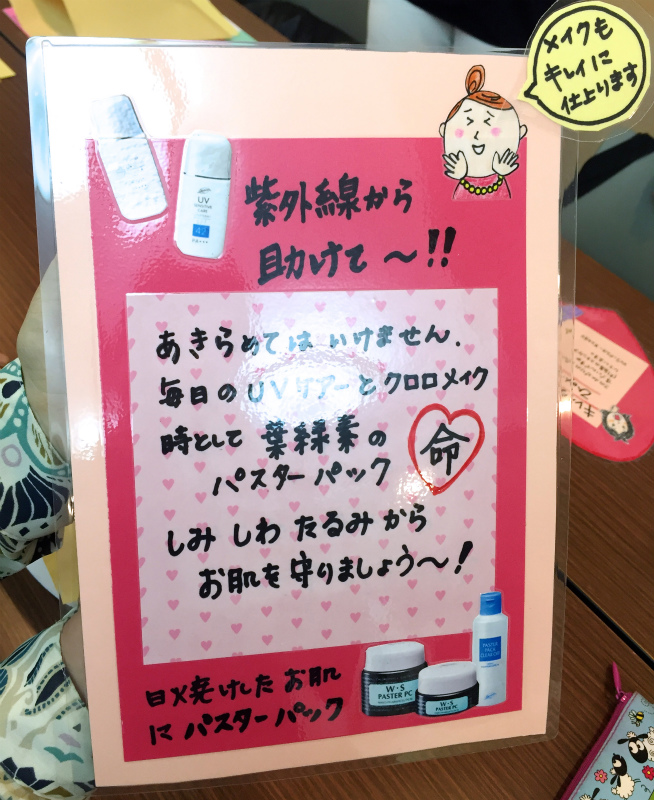 メイクも
キレイに
仕上ります
紫外線から
助けて〜!!
UV
42
あきらめてはいけません.
毎日のUVケアーとクロロメイク
時として葉緑素の
パスターパック
命
しみ しわ たるみから
お肌を守りましょう〜!
日メ焼けしたお肌
にパスターパック
W・S
PASTER PC
W・S
PASTER PC
PASTER
PACK